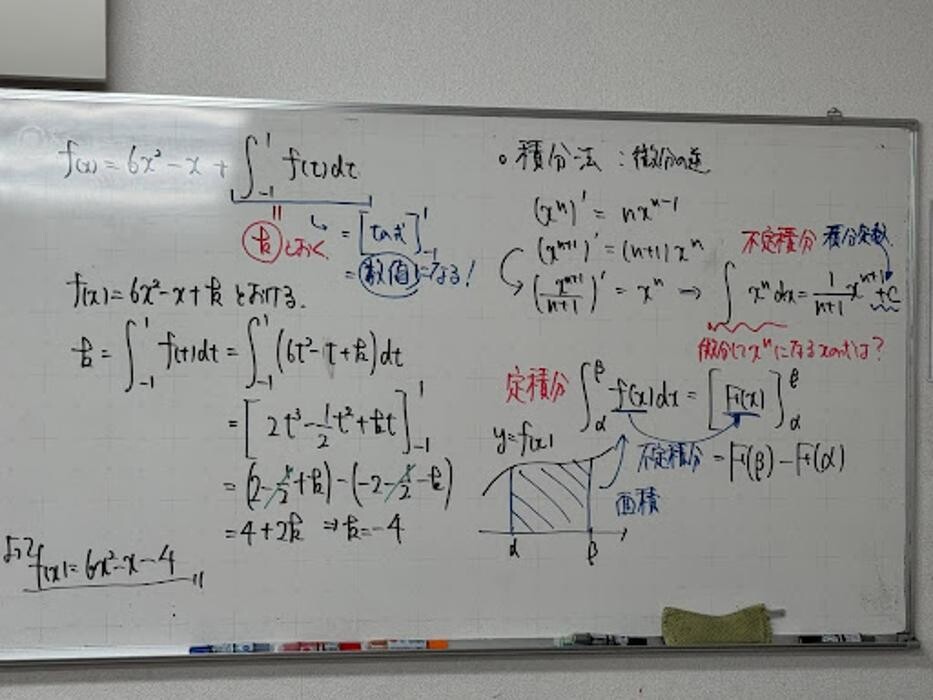 f(x) = 6x² - x + ∫₋₁¹ f(t)dt
"
kとおく
= [tの式]₋₁¹
= 数値になる!
f(x) = 6x² - x + k とおける.
k = ∫₋₁¹ f(t)dt = ∫₋₁¹ (6t² - t + k)dt
= [2t³ - 1/2 t² + kt]₋₁¹
= (2 - 1/2 + k) - (-2 - 1/2 - k)
= 4 + 2k ⇒ k = -4
よって f(x) = 6x² - x - 4 〃
○ 積分法 : 微分の逆
(xⁿ)' = nxⁿ⁻¹
(xⁿ⁺¹)' = (n+1)xⁿ
(xⁿ⁺¹/n+1)' = xⁿ →
不定積分 積分定数
∫ xⁿ dx = 1/n+1 xⁿ⁺¹ + C
微分してxⁿになるxの式は?
定積分 ∫_α^β f(x)dx = [F(x)]_α^β
不定積分 = F(β) - F(α)
y = f(x)
面積
α β